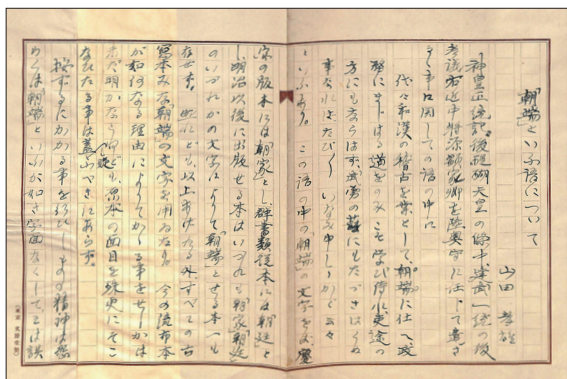 「朝端」といふ語について
山田孝雄
神皇正統記、後醍醐天皇の條中、建武一統の後
参議右近中將源顯家卿を陸奥守に任じて遣さ
るゝ事に関しての語の中に
代々和漢の稽古を業として、「朝端」に仕へ政
務にまじはる道をのみこそ学び侍れ。吏途の
方にもならはず、武勇の藝にもたづさはらぬ
事なれば、たび〳〵いなみ申しゝかど云々
といふあり。この語の中の「朝端」の文字を
家の版本には「朝家」とし、群書類従本には「朝廷」と
し、明治以後に出版せる本はいづれも「朝家」「朝廷」
のいづれかの文字によりて「朝端」とせる本一も
存せず。然れども、以上あげたる外すべての古
寫本みな「朝端」の文字を用ゐたり。今の流布本
が如何なる理由によりてかゝる事をせしかは
明かならねども、原本の面目を にそこ
なひたる事は蓋し疑ふべきにあらず。
按ずるにかかる事を その精神は恐
らくは「朝端」といふが如き字面なくして、こは誤